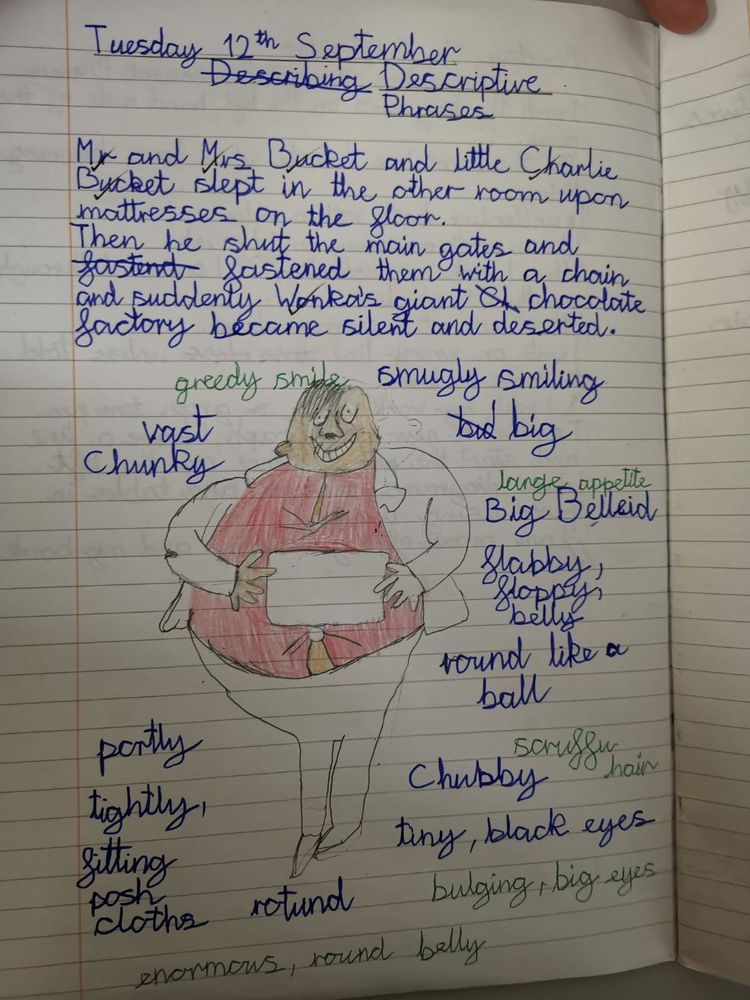 Tuesday 12th September
Describing Descriptive
Phrases
Mr and Mrs Bucket and little Charlie
Bucket slept in the other room upon
mattresses on the floor.
Then he shut the main gates and
fastend fastened them with a chain
and suddenly Wonka's giant Ch chocolate
factory became silent and deserted.
greedy smile
smugly smiling
vast
bid big
Chunky
large appetite
Big Belleid
flabby,
floppy,
belly
round like a
ball
portly
scruffy
hair
Chubby
tightly,
tiny, black eyes
fitting
posh
cloths
rotund
bulging, big eyes
enormous, round belly